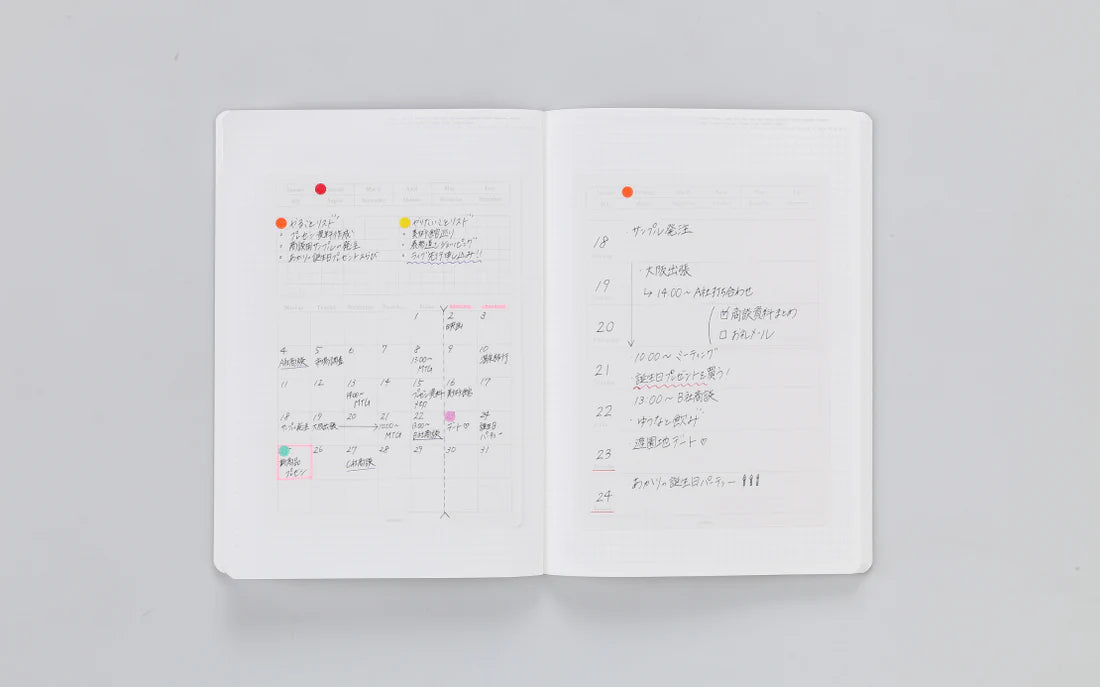 やることリスト
・プレゼン資料作成
・商談用サンプルの発注
・あかりの誕生日プレゼントえらび
やりたいことリスト
・美術館巡り
・表参道でショッピング
・ライブ先行申し込み!!
1 2 3
映画
4 5 6 7 8 9 10
A社商談 市場調査 13:00～ MTG 温泉旅行
11 12 13 14 15 16 17
MTG プレゼン資料 〆切 美術館
18 19 20 21 22 24
サンプル発注 大阪出張 10:00～ MTG 13:00～ B社商談 デート♡ 誕生日パーティー
26 27 28 29 30 31
新商品 プレゼン C社商談
18 ・サンプル発注
19 ・大阪出張
↳ 14:00～ A社打ち合わせ
20 ☑ 商談資料まとめ
☐ お礼メール
21 10:00～ ミーティング
・誕生日プレゼントを買う!
22 13:00～ B社商談
・ゆうなと飲み
23 遊園地デート♡
24 あかりの誕生日パーティー